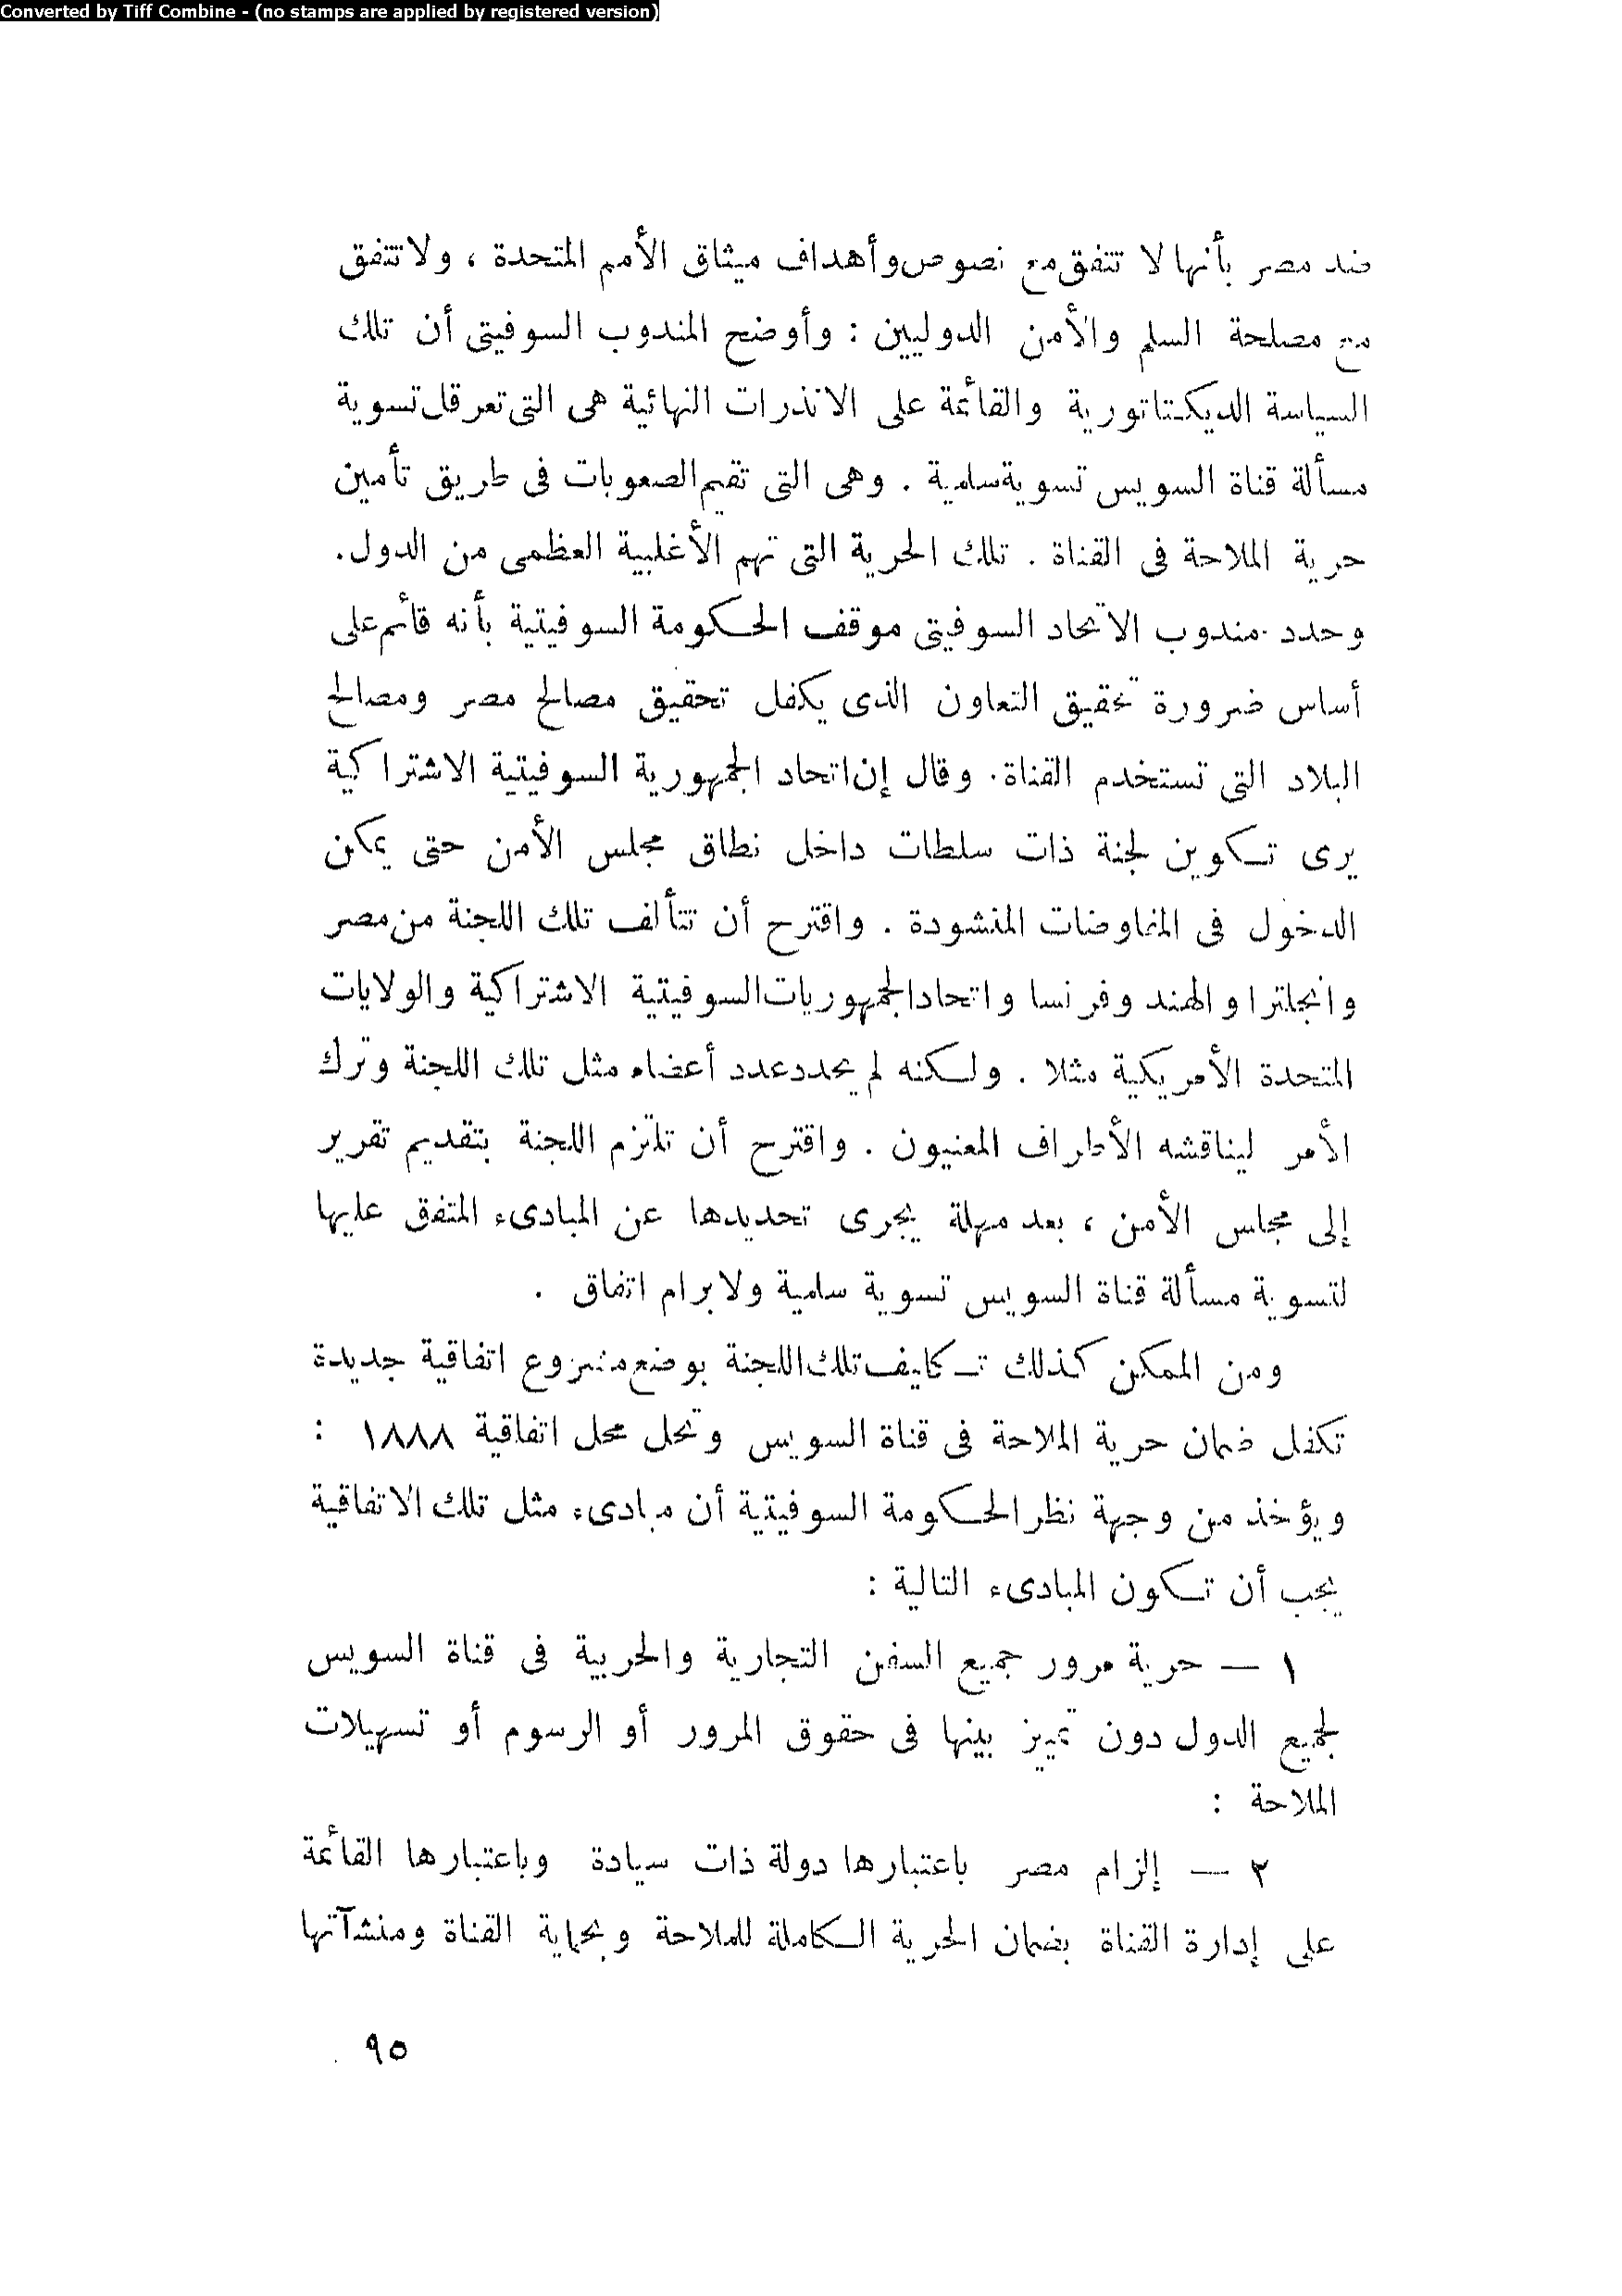 Converted by Tiff Combine - (no stamps are applied by registered version)
ضد مصر بأنها لا تتفق مع نصوص وأهداف ميثاق الأمم المتحدة ، ولا تتفق
مع مصلحة السلم والأمن الدوليين : وأوضح المندوب السوفيتى أن تلك
السياسة الديكتاتورية والقائمة على الانذرات النهائية هى التى تعرقل تسوية
مسألة قناة السويس تسوية سلمية . وهى التى تقيم الصعوبات فى طريق تأمين
حرية الملاحة فى القناة . تلك الحرية التى تهم الأغلبية العظمى من الدول .
وحدد مندوب الاتحاد السوفيتى موقف الحكومة السوفيتية بأنه قائم على
أساس ضرورة تحقيق التعاون الذى يكفل تحقيق مصالح مصر ومصالح
البلاد التى تستخدم القناة . وقال إن اتحاد الجمهورية السوفيتية الاشتراكية
يرى تكوين لجنة ذات سلطات داخل نطاق مجلس الأمن حتى يمكن
الدخول فى المفاوضات المنشودة . واقترح أن تتألف تلك اللجنة من مصر
وانجلترا والهند وفرنسا واتحاد الجمهوريات السوفيتية الاشتراكية والولايات
المتحدة الأمريكية مثلا . ولكنه لم يحدد عدد أعضاء مثل تلك اللجنة وترك
الأمر ليناقشه الأطراف المعنيون . واقترح أن تلتزم اللجنة بتقديم تقرير
إلى مجلس الأمن ، بعد مهلة يجرى تحديدها عن المبادىء المتفق عليها
لتسوية مسألة قناة السويس تسوية سلمية ولابرام اتفاق .
ومن الممكن كذلك تكليف تلك اللجنة بوضع مشروع اتفاقية جديدة
تكفل ضمان حرية الملاحة فى قناة السويس وتحل محل اتفاقية ١٨٨٨ :
ويؤخذ من وجهة نظر الحكومة السوفيتية أن مبادىء مثل تلك الاتفاقية
يجب أن تكون المبادىء التالية :
١ — حرية مرور جميع السفن التجارية والحربية فى قناة السويس
لجميع الدول دون تمييز بينها فى حقوق المرور أو الرسوم أو تسهيلات
الملاحة :
٢ — إلزام مصر باعتبارها دولة ذات سيادة وباعتبارها القائمة
على إدارة القناة بضمان الحرية الكاملة للملاحة وبحماية القناة ومنشآتها
٩٥